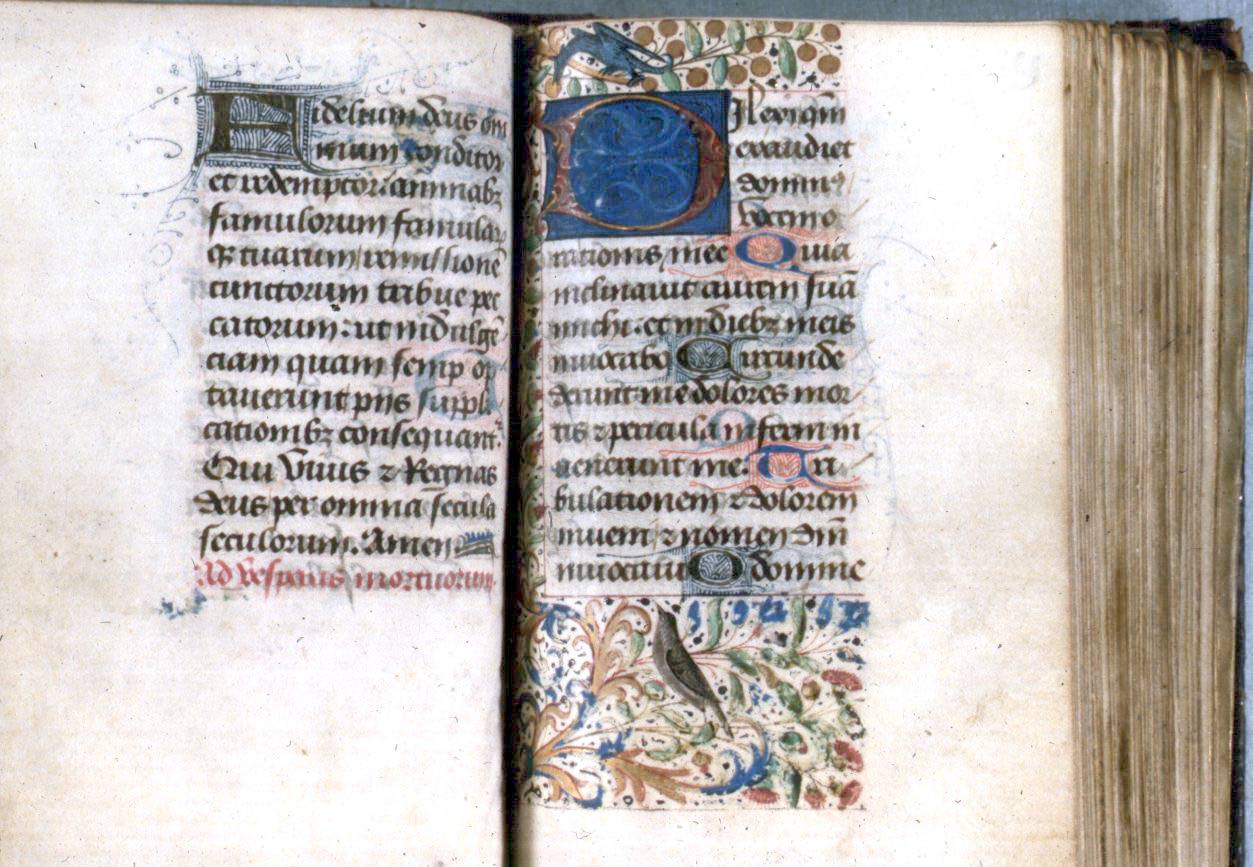 Fidelium deus om̄
nium conditor
et redemptor: animabꝫ
famulorum famula
rꝫ tuarum remissionē
cunctorum tribue pec
catorum: ut indulgē
ciam quam semp op
tauerunt pijs suppli
cationibꝫ consequant᷑.
Qui Viuis ⁊ Regnas
deus per omnia secula
seculorum. Amen
Ad vesperas mortuorum.
Dilexi qm̄
exaudiet
dominus
vocem o
rationis mee Quia
inclinauit aurem suā
michi: et in diebꝫ meis
inuocabo Circunde
derunt me dolores mor
tis ⁊ pericula inferni in
uenerunt me: Tri
bulationem ⁊ dolorem
inueni ⁊ nomen dn̄i
inuocaui O domine